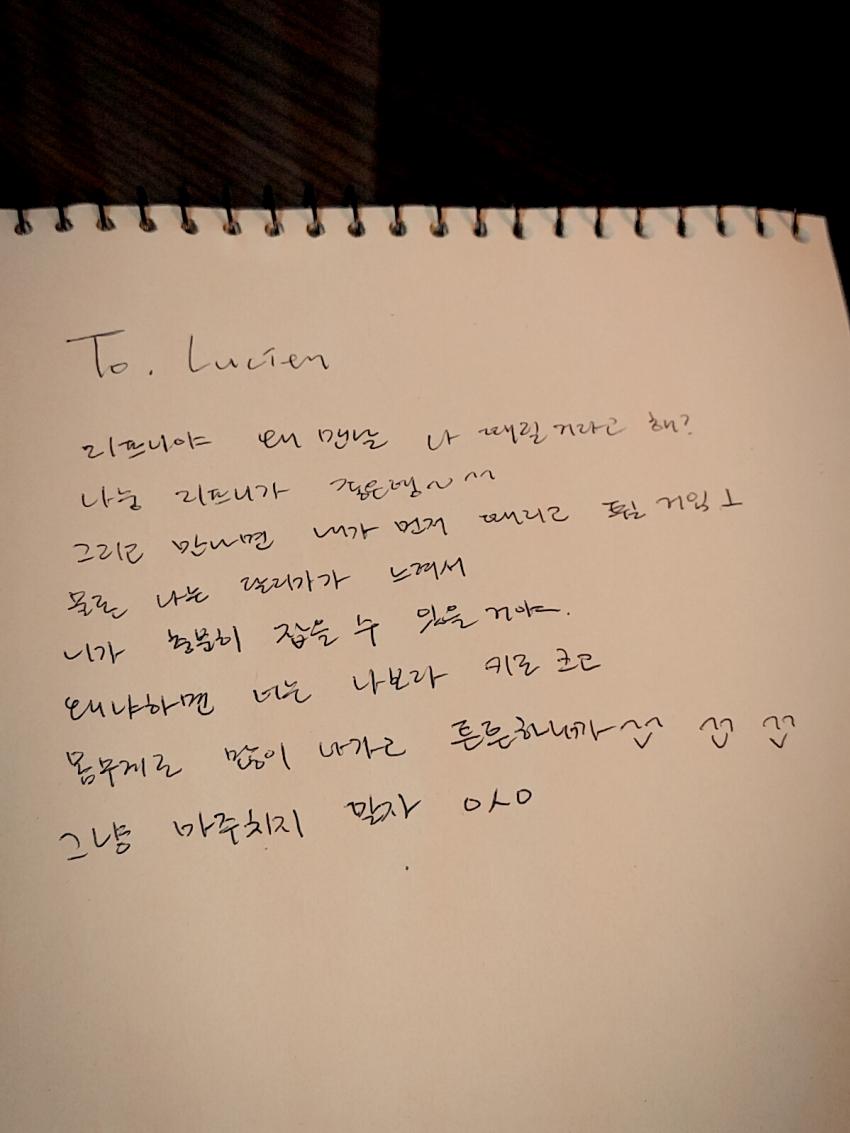 To. Lucien
리프니야 왜 맨날 나 때릴거라고 해?
나는 리프니가 좋은뎅~ ^^
그리고 만나면 내가 먼저 때리고 튈 거임 ㅗ
물론 나는 달리기가 느려서
니가 충분히 잡을 수 있을거야.
왜냐하면 너는 나보다 키도 크고
몸무게도 많이 나가고 튼튼하니까
그냥 마주치지 말자 ㅇㅅㅇ